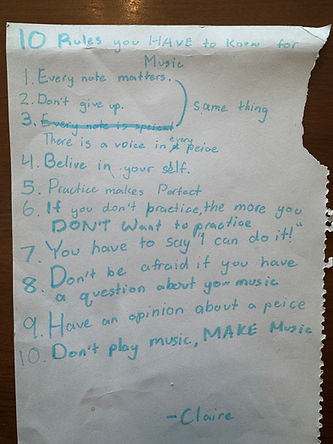 10 Rules you HAVE to know for
Music
1. Every note matters.
2. Don't give up.
same thing
3. Every note is speical
There is a voice in every peice
4. Belive in your self.
5. Practice makes Perfect
6. If you don't practice, the more you
DON'T want to practice
7. You have to say "I can do it!"
8. Don't be afraid if you have
a question about your music
9. Have an opinion about a peice
10. Don't play music, MAKE Music
-Claire